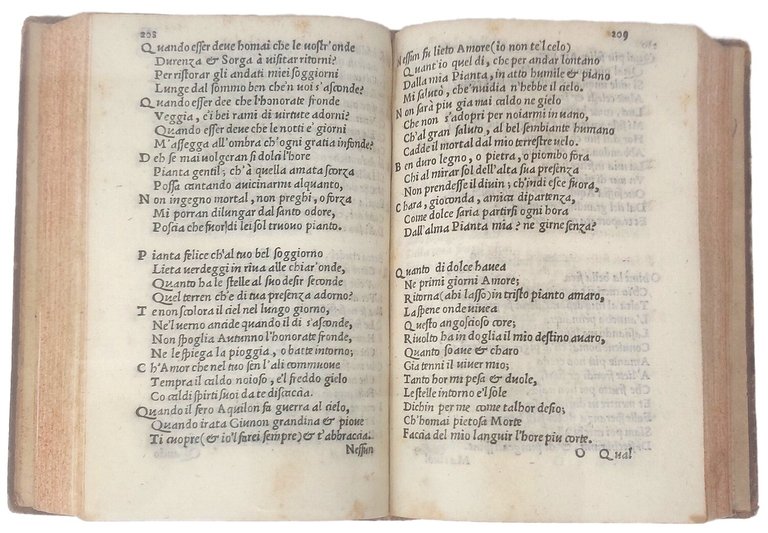 208
Quando esser deve homai che le vostr'onde
Durenza & Sorga à visitar ritorni?
Per ristorar gli andati miei soggiorni
Lunge dal sommo ben ch'en voi s'asconde?
Quando esser dee che l'honorate fronde
Veggia, e i bei rami di virtute adorni?
Quando esser deve che le notti e' giorni
M'assegga all'ombra ch'ogni gratia infonde?
Deh se mai volgeran si dolci l'hore
Pianta gentil; ch'à quella amata scorza
Possa cantando avicinarmi alquanto,
Non ingegno mortal, non preghi, o forza
Mi porran dilungar dal santo odore,
Poscia che fuor di lei sol truovo pianto.
Pianta felice ch'al tuo bel soggiorno
Lieta verdeggi in riva alle chiar'onde,
Quanto ha le stelle al suo desir seconde
Quel terren ch'e di tua presenza adorno?
Te non scolora il ciel nel lungo giorno,
Ne'l verno ancide quando il di s'asconde,
Non spoglia Autunno l'honorate fronde,
Ne le spiega la pioggia, o batte intorno;
Ch'Amor che nel tuo sen l'ali commuove
Tempra il caldo noioso, e'l freddo gielo
Co caldi spirti suoi da te discaccia.
Quando il fero Aquilon fa guerra al cielo,
Quando irata Giunon grandina & piove
Ti cuopre (& io'l farei sempre) & t'abbraccia.
Nessun
209
Nessun fu lieto Amore (io non te'l celo)
Quant'io quel di, che per andar lontano
Dalla mia Pianta, in atto humile & piano
Mi salutò, che'nuidia n'hebbe il cielo.
Non sarà piu gia mai caldo ne gielo
Che non s'adopri per noiarmi in vano,
Ch'al gran saluto, al bel sembiante humano
Cadde il mortal dal mio terrestre velo.
Ben duro legno, o pietra, o piombo fora
Chi al mirar sol dell'alta sua presenza
Non prendesse il divin; ch'indi esce fuora,
Chara, gioconda, amica dipartenza,
Come dolce saria partirsi ogni hora
Dall'alma Pianta mia? ne girne senza?
Quanto di dolce havea
Ne primi giorni Amore;
Ritorna (ahi lasso) in tristo pianto amaro,
La spene onde vivea
Questo angoscioso core;
Rivolto ha in doglia il mio destino avaro,
Quanto soave & charo
Gia tenni il viver mio;
Tanto hor mi pesa & duole,
Le stelle intorno e'l sole
Dichin per me come talhor desio;
Ch'homai pietosa Morte
Faccia del mio languir l'hore piu corte.
O Qual